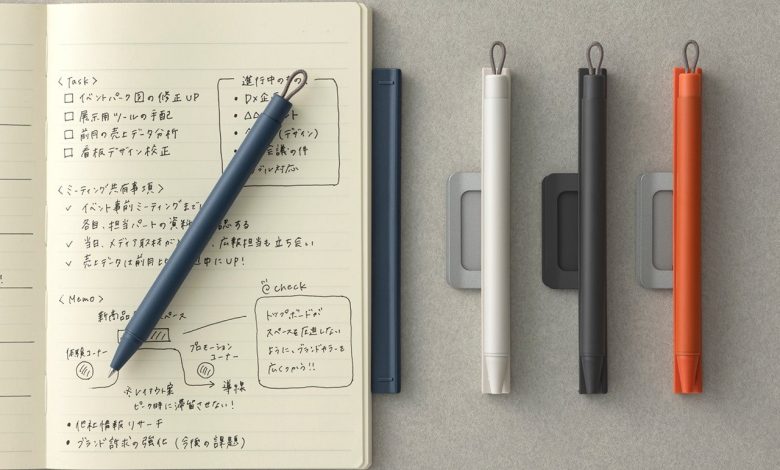 〈Task〉
□ イベントパーク図の修正UP
□ 展示用ツールの手配
□ 前月の売上データ分析
□ 看板デザイン校正
進行中の
・DX企
・△△ ト
(デザイン)
会議の件
対応
〈ミーティング共有事項〉
✓ イベント事前ミーティングまで
各自、担当パートの資料 認する
✓ 当日、メディア取材が 、広報担当も立ち会い
✓ 売上データは前月 中にUP!
〈Memo〉
@check
新商品 スペース
トップボードが
スペースを圧迫しない
ように、ブランドカラーを
広くつかう!!
体験コーナー
プロモーション
コーナー
※レイアウト案
導線
ピーク時に滞留させない!
・他社情報リサーチ
・ブランド訴求の強化(今後の課題)